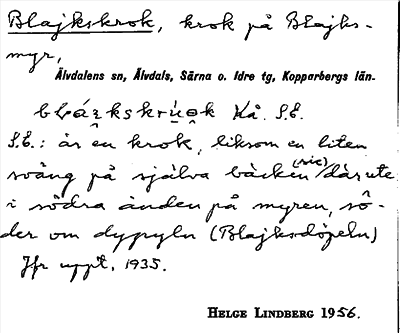 Blajkskrok, krok på Blajks-
myr,
Älvdalens sn, Älvdals, Särna o. Idre tg, Kopparbergs län.
Kå. S.E.
S.E.: är en krok, liksom en liten
sväng på själva bäcken (sic) därute
i södra änden på myren, sö-
der om dypyln (Blajksdöpeln)
Jfr uppt. 1935.
HELGE LINDBERG 1956.